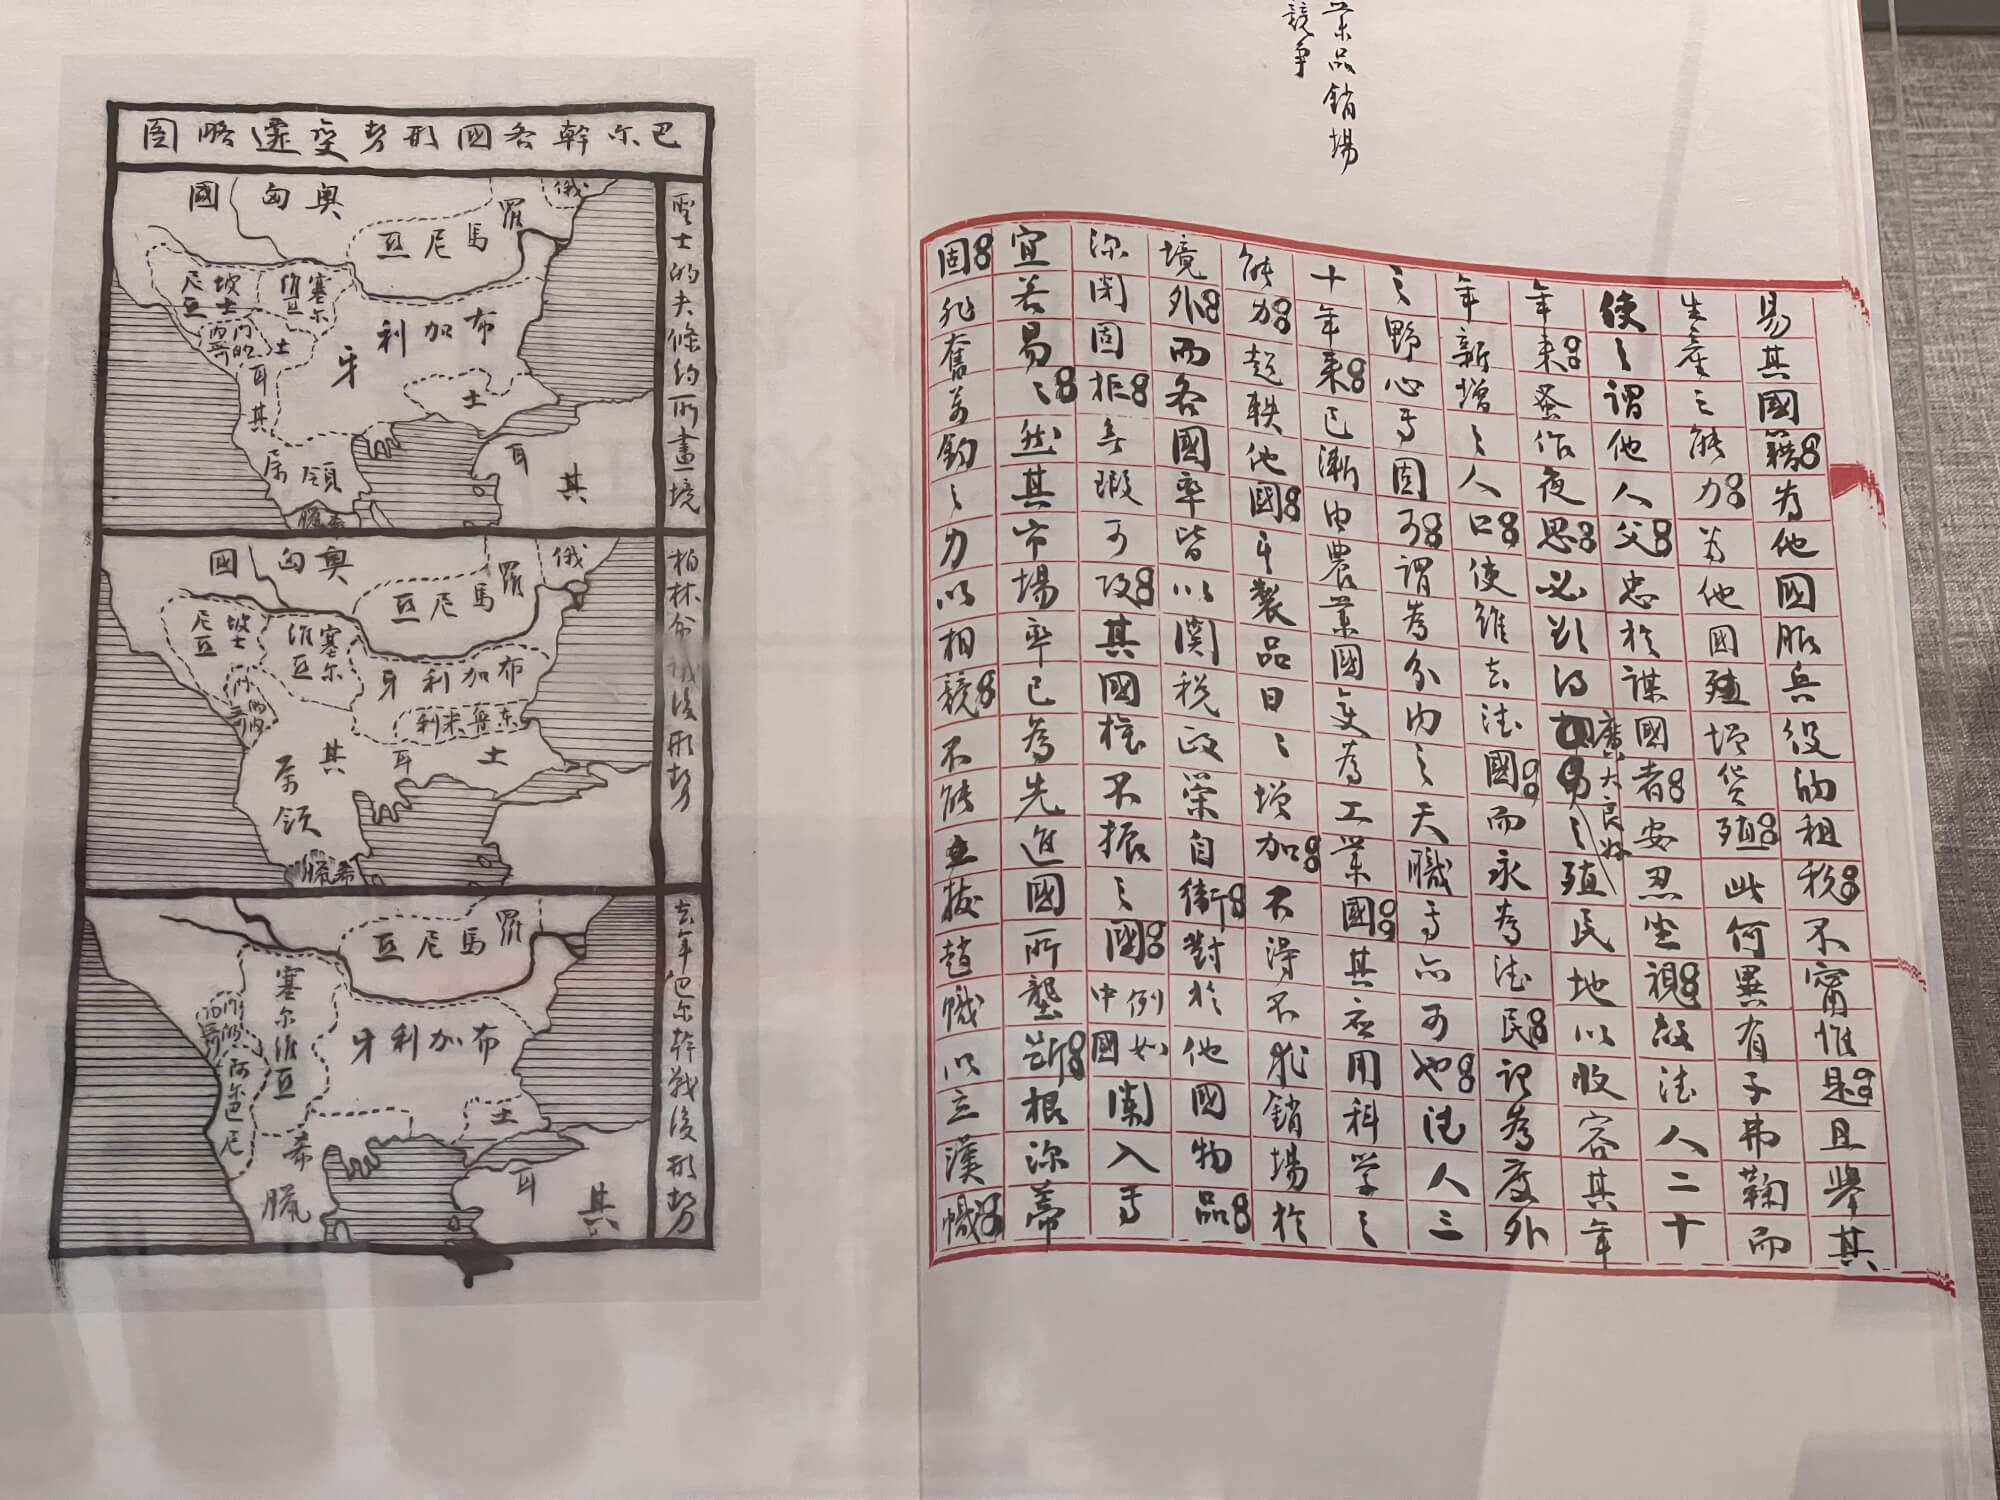 業品銷場
競爭
易其國籍為他國服兵役的租稅不甯惟是且舉其
生產之能力為他國殖增貨殖此何異有子弗鞠而
使之謂他人父忠於謀國者安忍坐視故德人二十
年來蚤作夜思必欲得廣大良好之殖民地以收容其年
年新增之人口使雖去德國而永為德民認為度外
之野心乎固可謂為分內之天職乎亦可也德人三
十年來已漸由農業國變為工業國其應用科學之
能力超軼他國乎製品日日增加不得不求銷場於
境外而各國率皆以關稅政策自衛對於他國物品
深閉固拒無瑕可攻其國權不振之國例如中國闌入乎
宜若易易然其市場率已為先進國所壟斷根深蒂
固非奮萬鈞之力以相競不能立拔趙幟以立漢幟
巴尔幹各國形势变遷略圖
聖士的夫條約所畫境
奧匈國
俄
羅馬尼亞
坡士尼亞
塞尔維亞
門的內哥
布加利牙
土耳其屬領
土耳其
希臘
柏林會議後形势
奧匈國
俄
羅馬尼亞
坡士尼亞
塞尔維亞
門的內哥
布加利牙
東魯米利
土耳其屬領
希臘
去年巴尔幹戰後形势
羅馬尼亞
塞尔維亞
門的內哥
阿尔巴尼
布加利牙
土耳其
希臘